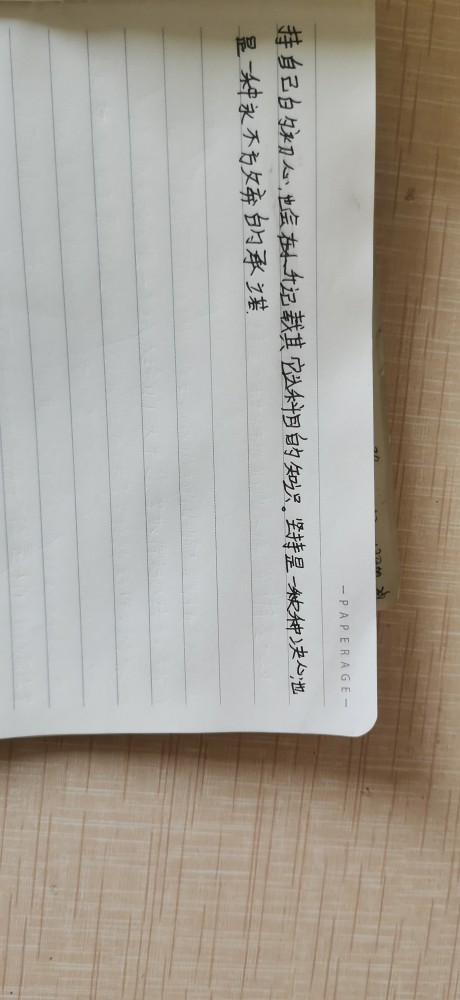 —PAPERAGE—
持自己的初心,也会在本子记载其它科目的知识。坚持是一种决心,也
是一种永不放弃的承诺.